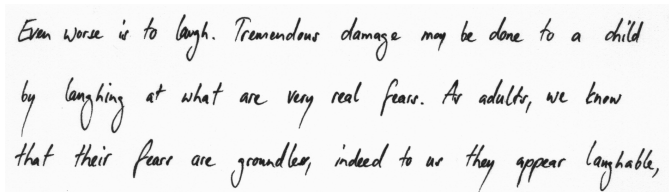 Even worse is to laugh. Tremendous damage may be done to a child
by laughing at what are very real fears. As adults, we know
that their fears are groundless, indeed to us they appear laughable,